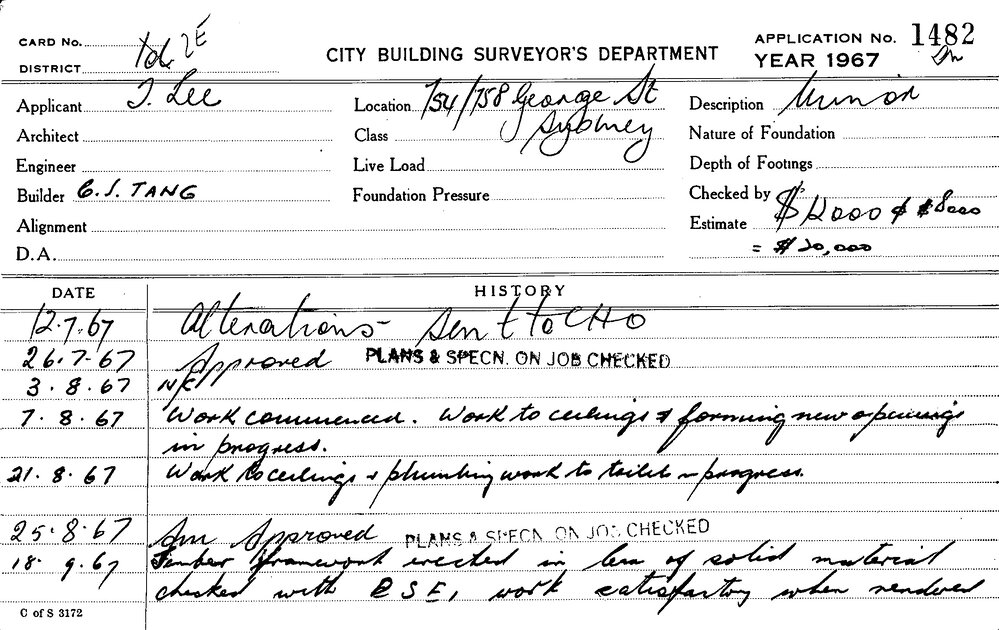 CARD No.
DISTRICT Id. 2E
CITY BUILDING SURVEYOR'S DEPARTMENT
APPLICATION No. 1482
YEAR 1967 Am
Applicant J. Lee
Location 754/758 George St
Sydney
Description Minor
Architect
Class
Nature of Foundation
Engineer
Live Load
Depth of Footings
Builder C.S. TANG
Foundation Pressure
Checked by
Estimate $12000 & $8000
= $20,000
Alignment
D.A.
DATE HISTORY
12.7.67 Alterations - Sent to CHO
26.7.67 Approved PLANS & SPECN. ON JOB CHECKED
3.8.67 N/C
7.8.67 Work commenced. Work to ceilings & forming new openings
in progress.
21.8.67 Work to ceilings & plumbing work to toilets in progress.
25.8.67 Am Approved PLANS & SPECN. ON JOB CHECKED
18.9.67 Timber framework erected in lieu of solid material
checked with D.S.E, work satisfactory when rendered
C of S 3172